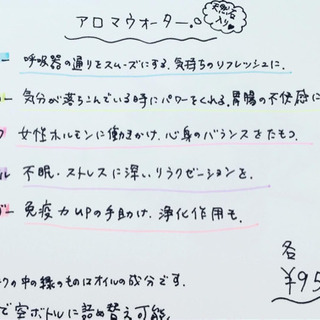 アロマウォーター。
天然石入り♥
ー 呼吸器の通りをスムーズにする。気持ちのリフレッシュに.
ー 気分が落ちこんでいる時にパワーをくれる。胃腸の不快感に
女性ホルモンに働きかけ、心身のバランスをたもつ.
ル 不眠、ストレスに深いリラクゼーションを.
ー 免疫力UPの手助け、浄化作用も.
各
¥95
クの中の緑のものはオイルの成分です.
で空ボトルに詰め替え可能.